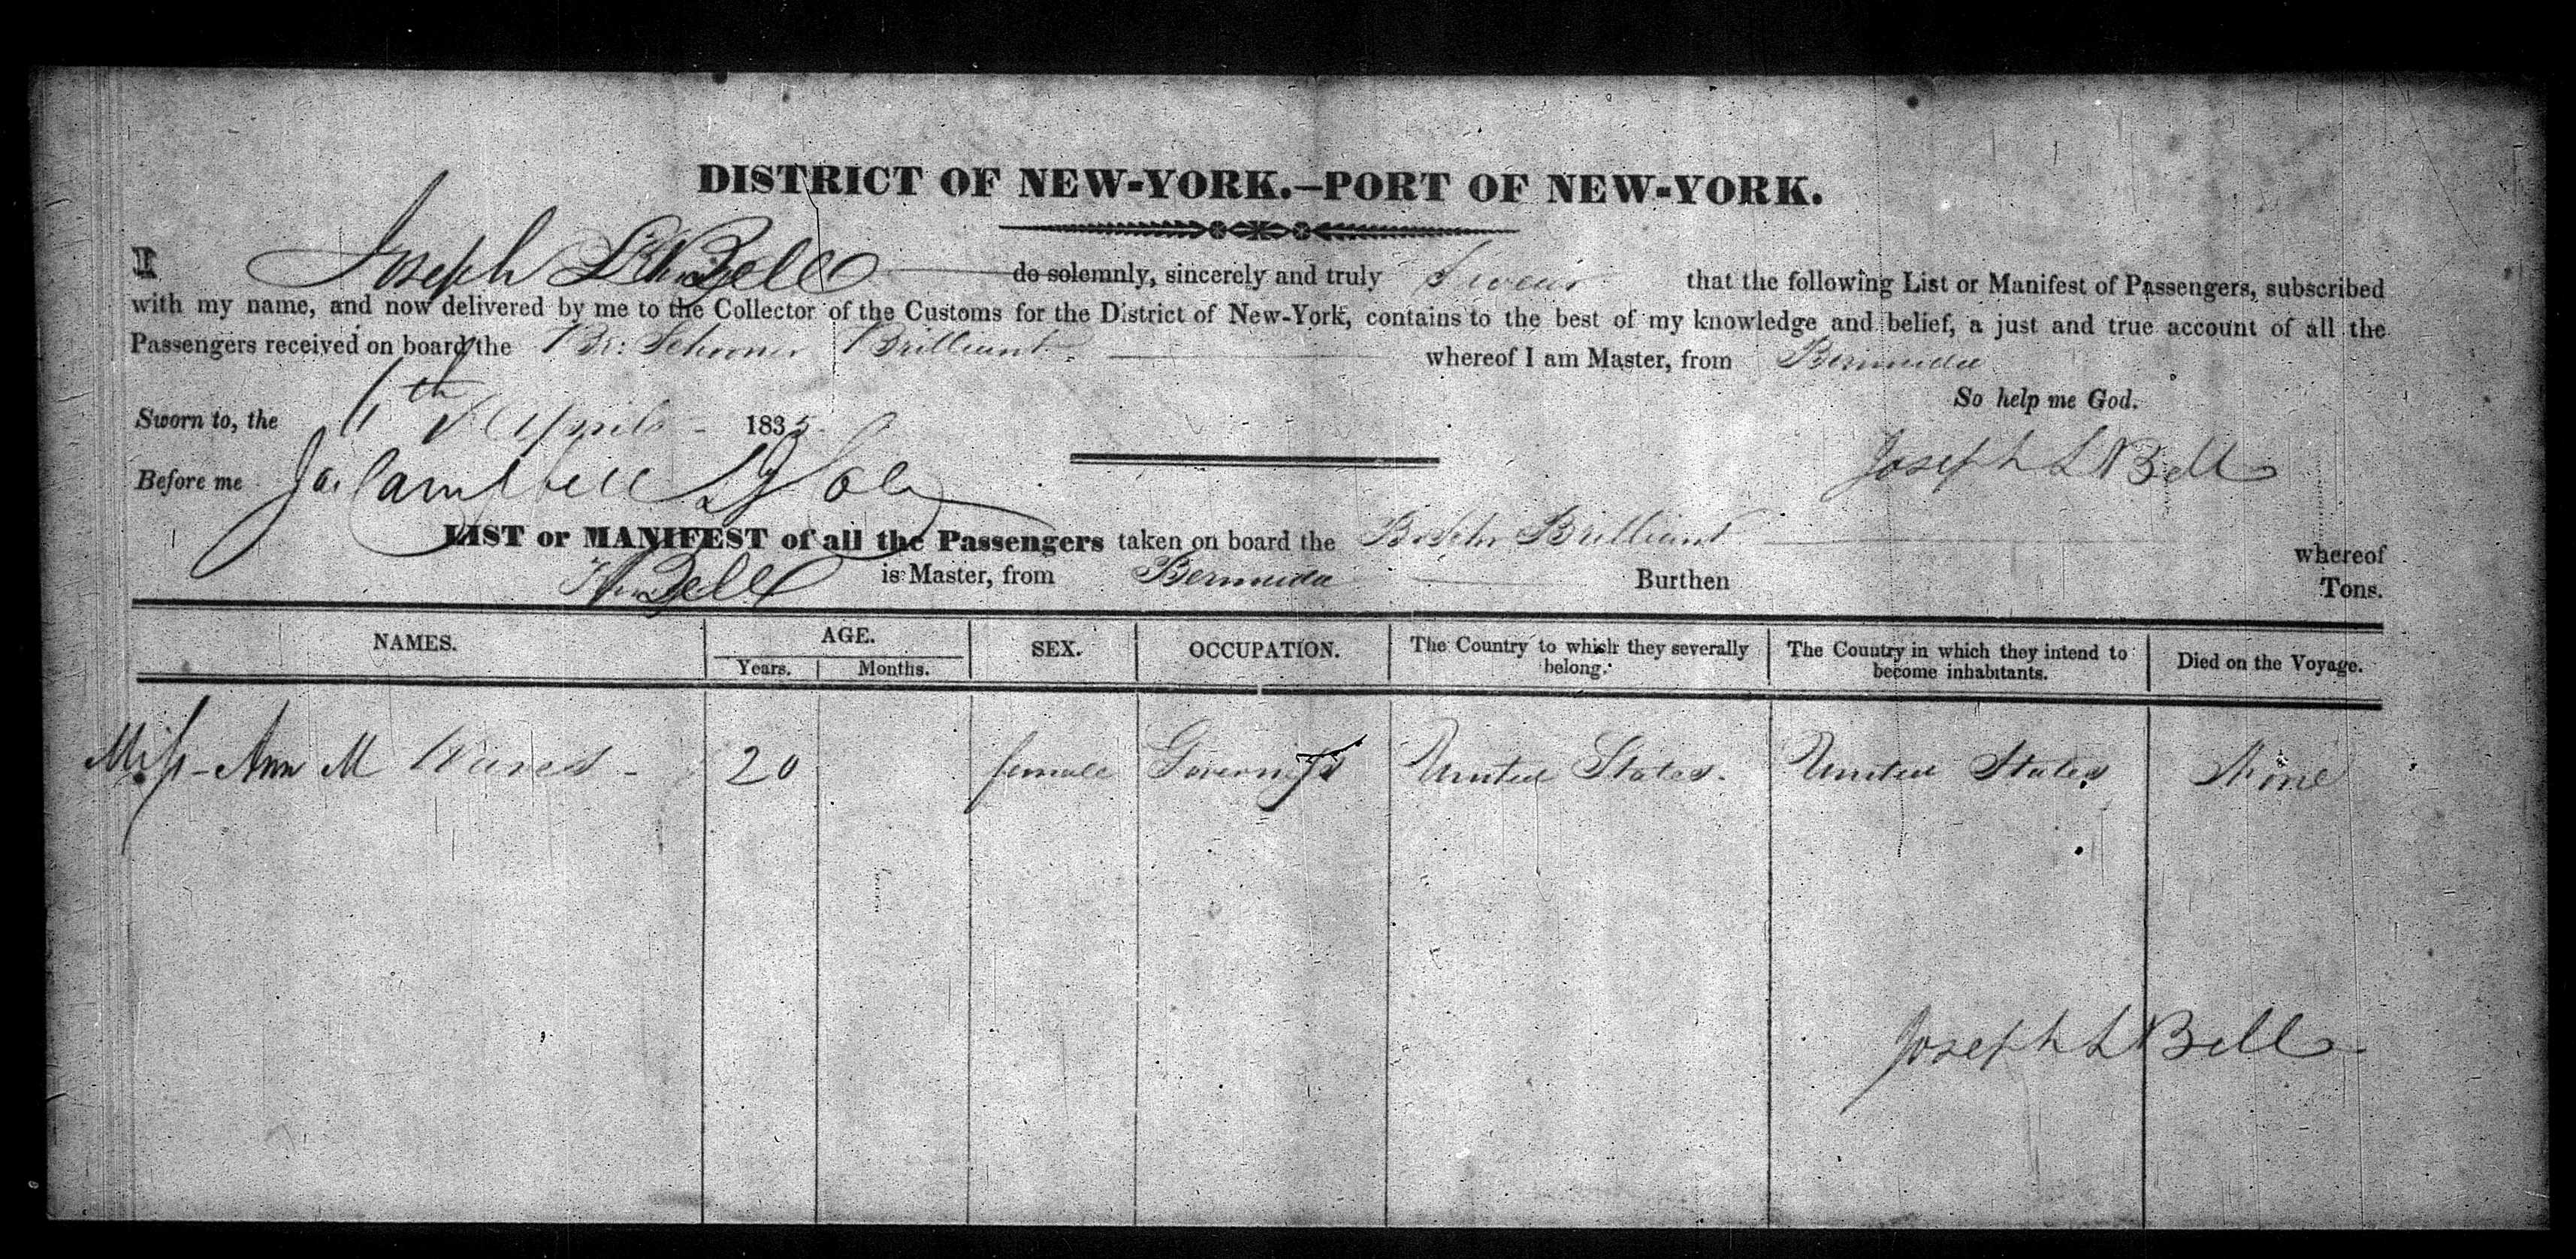 DISTRICT OF NEW-YORK.—PORT OF NEW-YORK.
I Joseph Bell do solemnly, sincerely and truly Swear that the following List or Manifest of Passengers, subscribed
with my name, and now delivered by me to the Collector of the Customs for the District of New-York, contains to the best of my knowledge and belief, a just and true account of all the
Passengers received on board the Br: Schooner Brilliant whereof I am Master, from Bermuda
So help me God.
Sworn to, the th April 1835
Joseph L Bell
Before me Ja. Campbell
LIST or MANIFEST of all the Passengers taken on board the Br Schr Brilliant whereof
Bell is Master, from Bermuda Burthen Tons.
NAMES. AGE. SEX. OCCUPATION. The Country to which they severally belong. The Country in which they intend to become inhabitants. Died on the Voyage.
Years. Months.
Miss Ann M 20 female Governess United States. United States None
Joseph L Bell